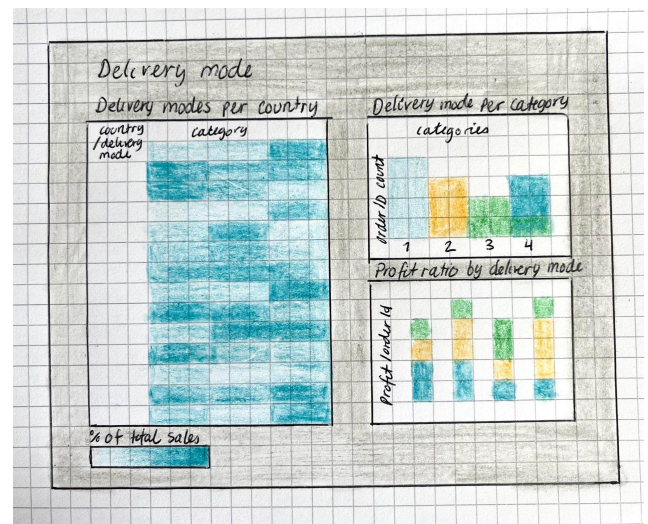 Delivery mode
Delivery modes per country
country
/delivery
mode
category
% of total sales
Delivery mode per category
categories
order ID count
1 2 3 4
Profit ratio by delivery mode
Profit/order Id